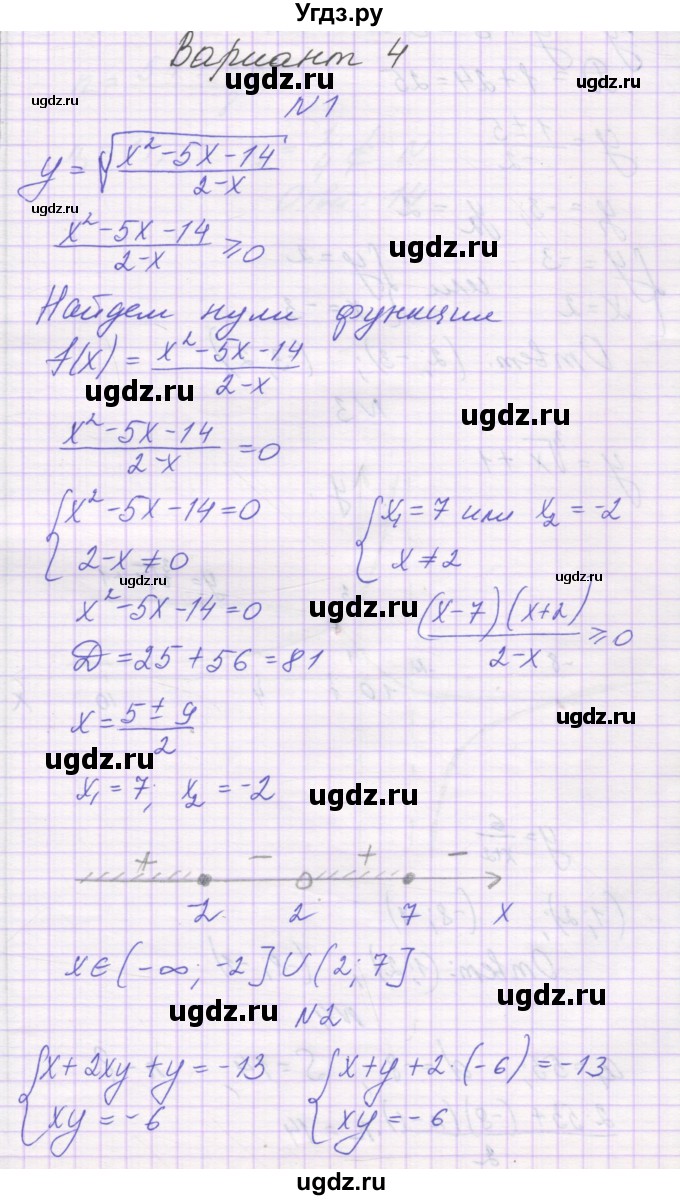 Угдз.ру
Вариант 4
ugdz.ru
ugdz.ru
N1
y = √((x² - 5x - 14)/(2-x))
ugdz.ru
ugdz.ru
(x² - 5x - 14)/(2-x) ≥ 0
ugdz.ru
Найдем нули функции
f(x) = (x² - 5x - 14)/(2-x)
ugdz.ru
ugdz.ru
(x² - 5x - 14)/(2-x) = 0
{ x² - 5x - 14 = 0
2-x ≠ 0
{ x₁ = 7 или x₂ = -2
x ≠ 2
ugdz.ru
ugdz.ru
x² - 5x - 14 = 0
ugdz.ru
((x-7)(x+2))/(2-x) ≥ 0
D = 25 + 56 = 81
x = (5 ± 9)/2
ugdz.ru
ugdz.ru
x₁ = 7; x₂ = -2
ugdz.ru
+ - + -
-2 2 7 x
x ∈ (-∞; -2] ∪ (2; 7]
ugdz.ru
ugdz.ru
N2
{ x + 2xy + y = -13
xy = -6
{ x + y + 2·(-6) = -13
xy = -6
ugdz.ru